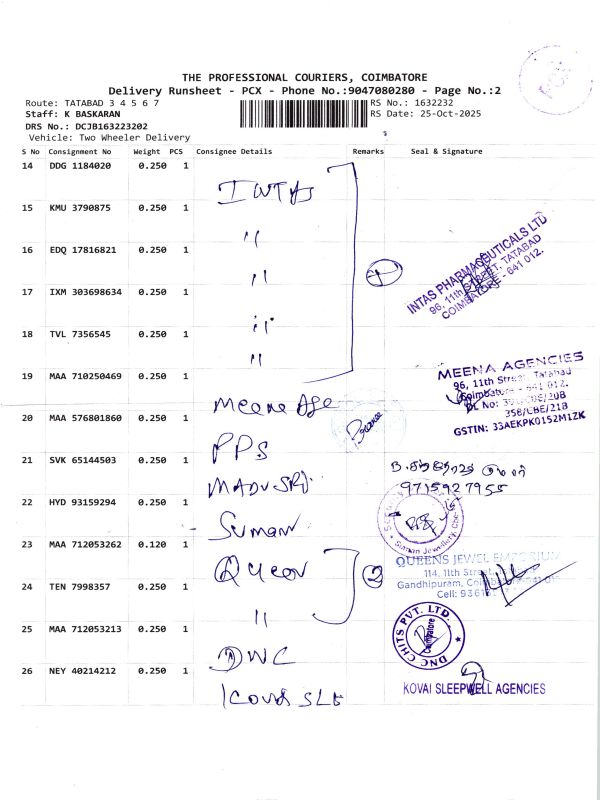 THE PROFESSIONAL COURIERS, COIMBATORE
Delivery Runsheet - PCX - Phone No.:9047080280 - Page No.:2
Route: TATABAD 3 4 5 6 7
RS No.: 1632232
Staff: K BASKARAN
RS Date: 25-Oct-2025
DRS No.: DCJB163223202
Vehicle: Two Wheeler Delivery
S No Consignment No Weight PCS Consignee Details Remarks Seal & Signature
14 DDG 1184020 0.250 1
INTAS
15 KMU 3790875 0.250 1
"
16 EDQ 17816821 0.250 1
"
17 IXM 303698634 0.250 1
"
18 TVL 7356545 0.250 1
"
INTAS PHARMACEUTICALS LTD
96, 11th STREET, TATABAD
COIMBATORE - 641 012.
19 MAA 710250469 0.250 1
Meena Age
MEENA AGENCIES
96, 11th Street, Tatabad
Coimbatore - 641 012.
DL No: 20B
35B/CBE/21B
GSTIN: 33AEKPK0152M1ZK
20 MAA 576801860 0.250 1
PPS
21 SVK 65144503 0.250 1
MADUSRI
9715927955
22 HYD 93159294 0.250 1
Suman
Suman Jewellery
23 MAA 712053262 0.120 1
Queen
2
QUEENS JEWEL EMPORIUM
114, 11th Street,
Gandhipuram,
Cell:
24 TEN 7998357 0.250 1
"
25 MAA 712053213 0.250 1
DNC CHITS PVT. LTD.
Coimbatore
26 NEY 40214212 0.250 1
KOVAI SLEEPWELL AGENCIES